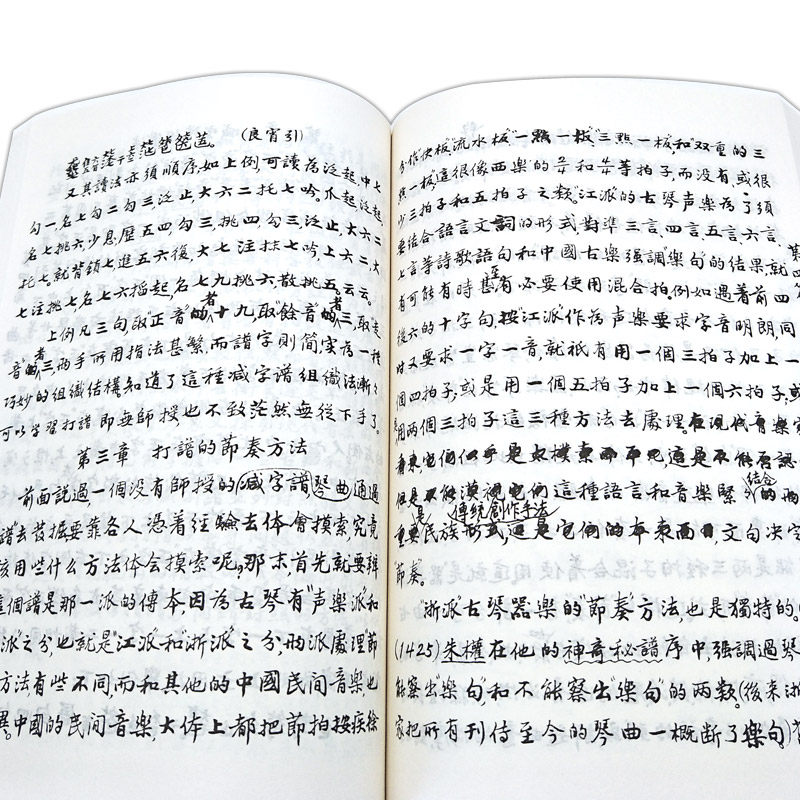 (良宵引)
又其讀法亦須順序,如上例,可讀為泛起,中七
勾一,名七勾二勾三泛止,大六二托七吟。爪泛起,
名七挑六少息,歷五四勾三,挑四,勾三,泛止,大六二,
托七。就背鎖七進五六復,大七注抹七吟,上六二,大
七注挑七,名七六搯起,名七九挑六,散挑五,云云。
上例凡三句取"正音"者的十九,取"餘音"者的三,取"走
音"者的三,兩手所用指法甚繁,而譜字則簡,实為一種
巧妙的組織结構,知道了這種减字譜組織法,漸々
可以学習打譜,即無師授,也不致茫然無從下手了。
第三章 打譜的節奏方法
前面説過,一個没有師授的减字譜琴曲,通過
譜"去苃掘要靠各人憑着经驗去体會摸索,究竟
該用些什么方法体会摸索呢?那末,首先就要辩
這個譜是那一派的傳本,因為古琴有"声楽派"和
派"之分,也就是"江派"和"浙派"之分,両派處理節
方法有些不同,而和其他的中國民间音楽也
異。中國的民间音楽,大体上都把節拍按疾徐
分作"快板""流水板""一點一板""三點一板",和"双重的三
點一板"這很像西樂的 和 等拍子,而没有,或很
少三拍子和五拍子之数。"江派"的古琴声楽為了須
要结合語言文詞的形式,對準三言、四言、五言、六言、
七言等詩歌語句和中國古楽强調"楽句"的结果,就
有可能有時甚至有必要使用混合拍。例如遇着前四
後六的十字句,按"江派"作為声楽要求字音明朗,同
时又要求一字一音,就祇有用一個三拍子加上一
個四拍子,或是用一個五拍子加上一個六拍子,或
用两個三拍子這三種方法去處理。在現代音楽家
看來它們似乎是太樸素而平凡,這是不能否認
但是不能漠視它們這種語言和音楽緊结合的兩
重要民族形式是傳統創作手法這是它們的本來面目,文句决定
節奏。
"浙派"古琴器楽的"節奏"方法,也是獨特的。
(1425)朱權在他的神奇秘譜序中,强調過琴
能察出"楽句"和不能察出"楽句"的两数。(後來浙
家把所有刊传至今的琴曲一概断了楽句。)